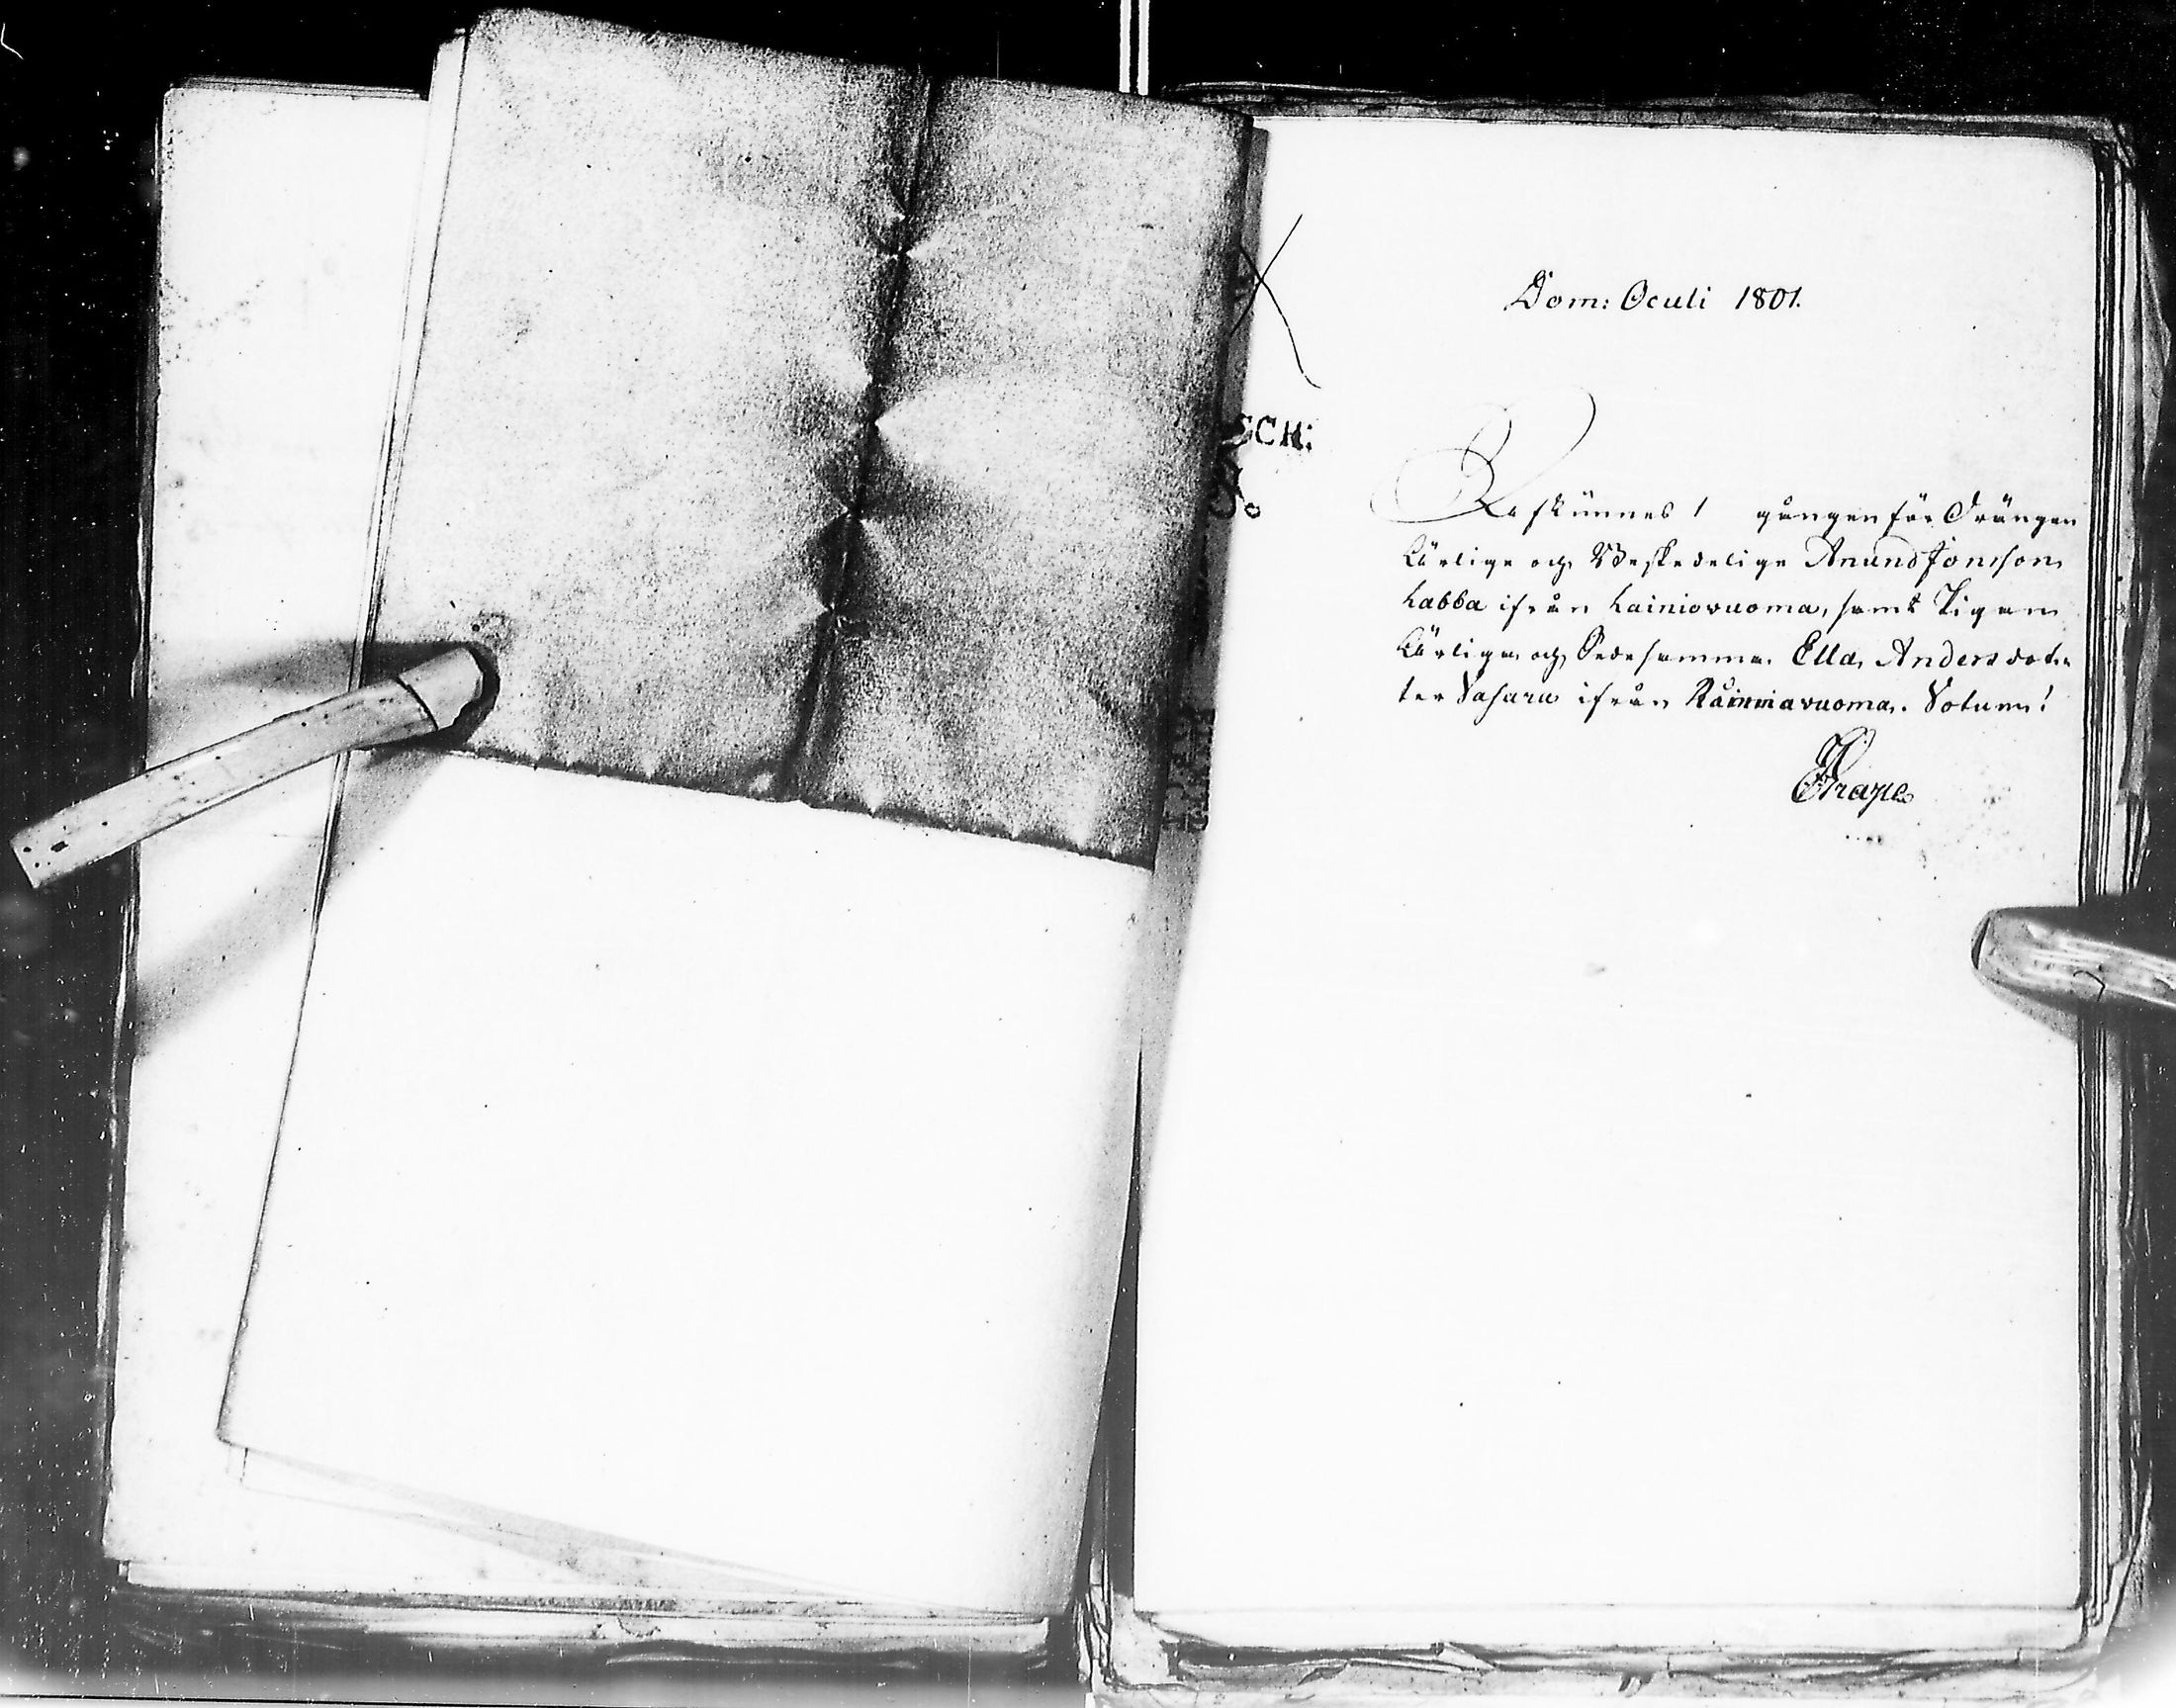 Dom: Oculi 1801.
SCH:
Lyses 1 gången för Drängen
Ärlige och Beskedelige Anund Jonsson
Labba ifrån Lainiovuoma, samt Pigan
Ärliga och Gudesamma Ella Andersdot-
ter Vasara ifrån Råinnavuoma. Votum!
Grape